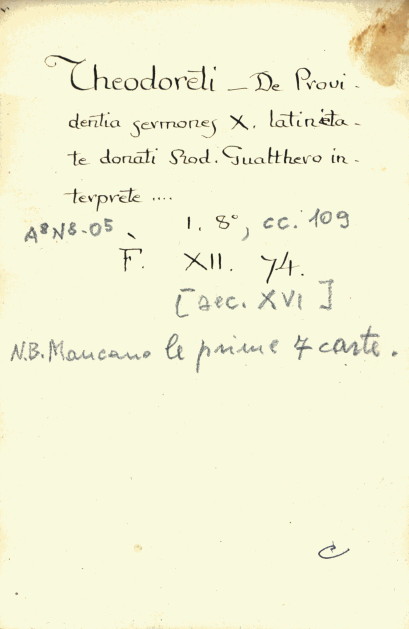 Theodoreti — De Provi-
dentia sermones X. latinita-
te donati Rod. Gualthero in-
terprete ....
1. 8°, cc. 109
F. XII. 74.
[sec. XVI]
N.B. Mancano le prime 7 carte.
C